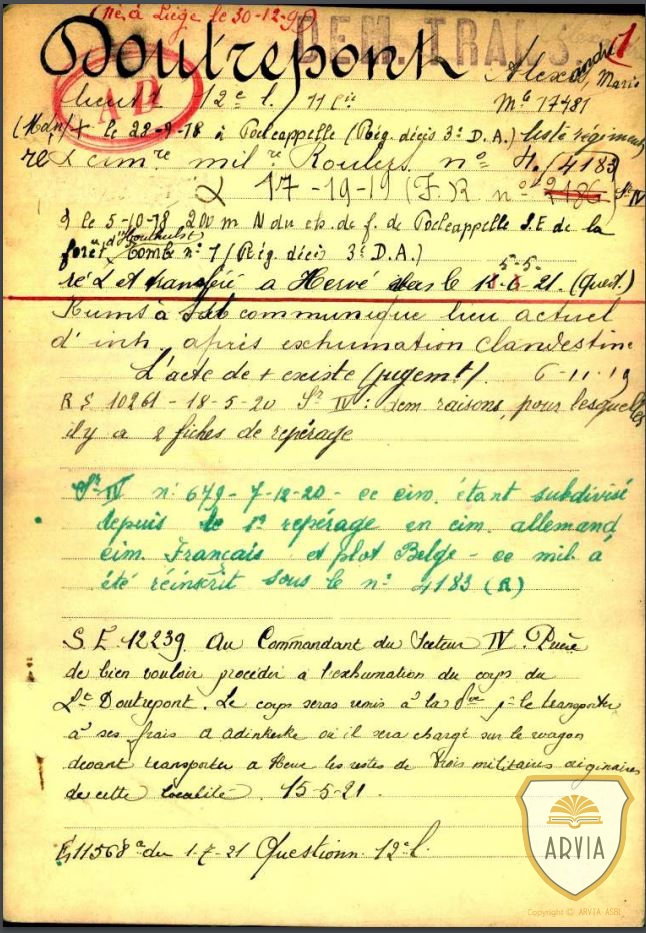 (né à Liége le 30-12-9
DEM. TRANS
Doutrepont Alexandre, Marie 1
AD
Lieut 12e l. 11 Cie Mle 17481
(Mdn) + le 28-9-18 à Poelcappelle (Rég. décès 3e D.A.) liste régiment
ré L cimre milre Roulers no 4183
L 17-19-19 (F.R no 2186 Sr IV
I le 5-10-18 200 m N du ch. de f. de Poelcappelle S.E de la
forêt d'Houthulst Tombe no 1 (Rég. décès 3e D.A.)
5-5-
ré L et transféré a Hervé le 21. (Quest.)
Rums à communique lieu actuel
d'inh. après exhumation clandestine
L'acte de + existe (jugemt). 6-11-19
R S 10261 - 18-5-20 Sr IV: dem raisons pour lesquelles
il y a 2 fiches de repérage
Sr IV no 679- 7-12-20 - ce cim. étant subdivisé
depuis le 1r repérage en cim. allemand,
cim. Français et plot Belge - ce mil. a
été réinscrit sous le no 4183 (R)
S. E. 12239. Au Commandant du Secteur IV. Prière
de bien vouloir procéder a l'exhumation du corps du
Lt Doutrepont. Le corps seras remis à la pr le transporter
à ses frais a Adinkerke où il sera chargé sur le wagon
devant transporter a Herve les restes de trois militaires originaires
de cette localité. 15-5-21.
E 11568 a du 1-7-21 Questionn. 12e l.
ARVIA
Copyright © ARVIA ASBL